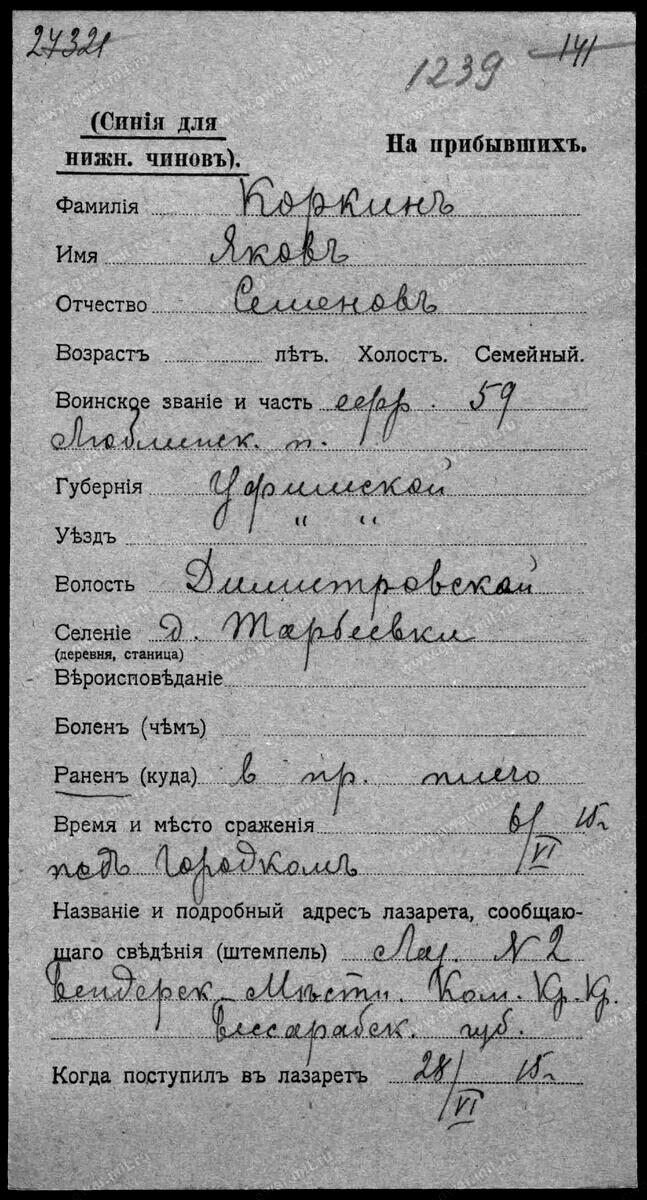 27321
1239 141
(Синія для
нижн. чиновъ).
На прибывшихъ.
Фамилія Коркинъ
Имя Яковъ
Отчество Семеновъ
Возрастъ лѣтъ. Холостъ. Семейный.
Воинское званіе и часть ефр. 59
Люблинск. п.
Губернія Уфимской
Уѣздъ " "
Волость Димитровской
Селеніе д. Тарбеевки
(деревня, станица)
Вѣроисповѣданіе
Боленъ (чѣмъ)
Раненъ (куда) в пр. плечо
Время и мѣсто сраженія 6/VI 15г
подъ Городкомъ
Названіе и подробный адресъ лазарета, сообщаю-
щаго свѣдѣнія (штемпель) Лаз. N 2
Бендерск. Мѣстн. Ком. Кр. Кр.
Бессарабск. губ.
Когда поступилъ въ лазаретъ 28/VI 15г